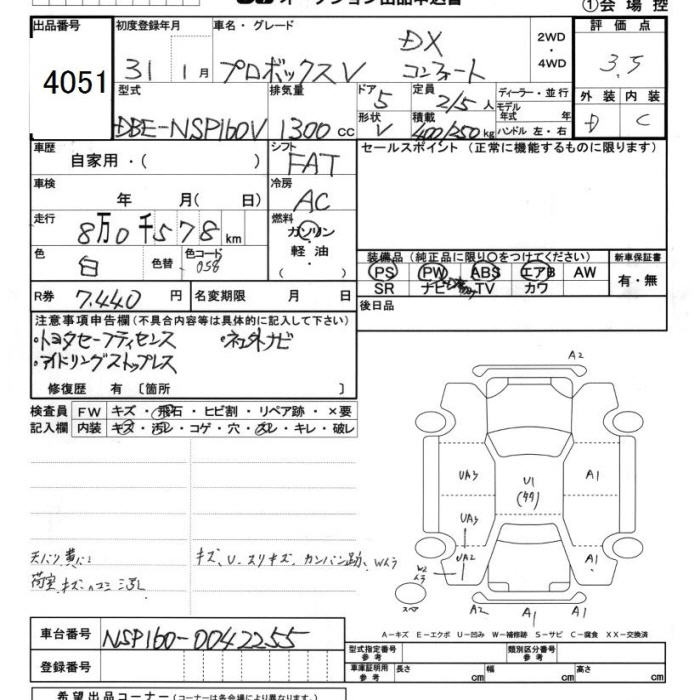 オークション出品申込書
①会場控
出品番号 初度登録年月 車名・グレード 評価点
4051 31 1月 プロボックスV DX コンフォート 2WD・4WD 3.5
型式 排気量 ドア 5 定員 2/5人 ディーラー・並行 外装 内装
DBE-NSP160V 1300cc 形状 V 積載 400/250kg モデル年式 年 D C
ハンドル 左・右
車歴 自家用・( ) シフト FAT セールスポイント (正常に機能するものに限ります)
車検 年 月( 日) 冷房 AC
走行 8万0千578km 燃料 ガソリン・軽油・( )
色 白 色替 色コード 058
装備品 (純正品に限り○をつけてください) 新車保証書
PS PW ABS エアB AW 有・無
SR ナビ TV カワ
R券 7,440円 名変期限 月 日
後日品
注意事項申告欄 (不具合内容等は具体的に記入して下さい)
・トヨタセーフティセンス ・社外ナビ
・アイドリングストップレス
修復歴 有 〔箇所 〕
検査員 FW キズ・飛石・ヒビ割・リペア跡・×要
記入欄 内装 キズ・汚レ・コゲ・穴・スレ・キレ・破レ
A2
UA3 U1 A1
UA3
UA2 A1
W2
スペア
A2 A1 A1
キズ、U、スリキズ、カンバン跡、Wムラ
A-キズ E-エクボ U-凹み W-補修跡 S-サビ C-腐食 XX-交換済
車台番号 NSP160-0042255
登録番号
型式指定番号 参考 類別区分番号 参考
車庫証明用 参考 長さ cm 幅 cm 高さ cm
希望出品コーナー (コーナーは各会場により異なります。)